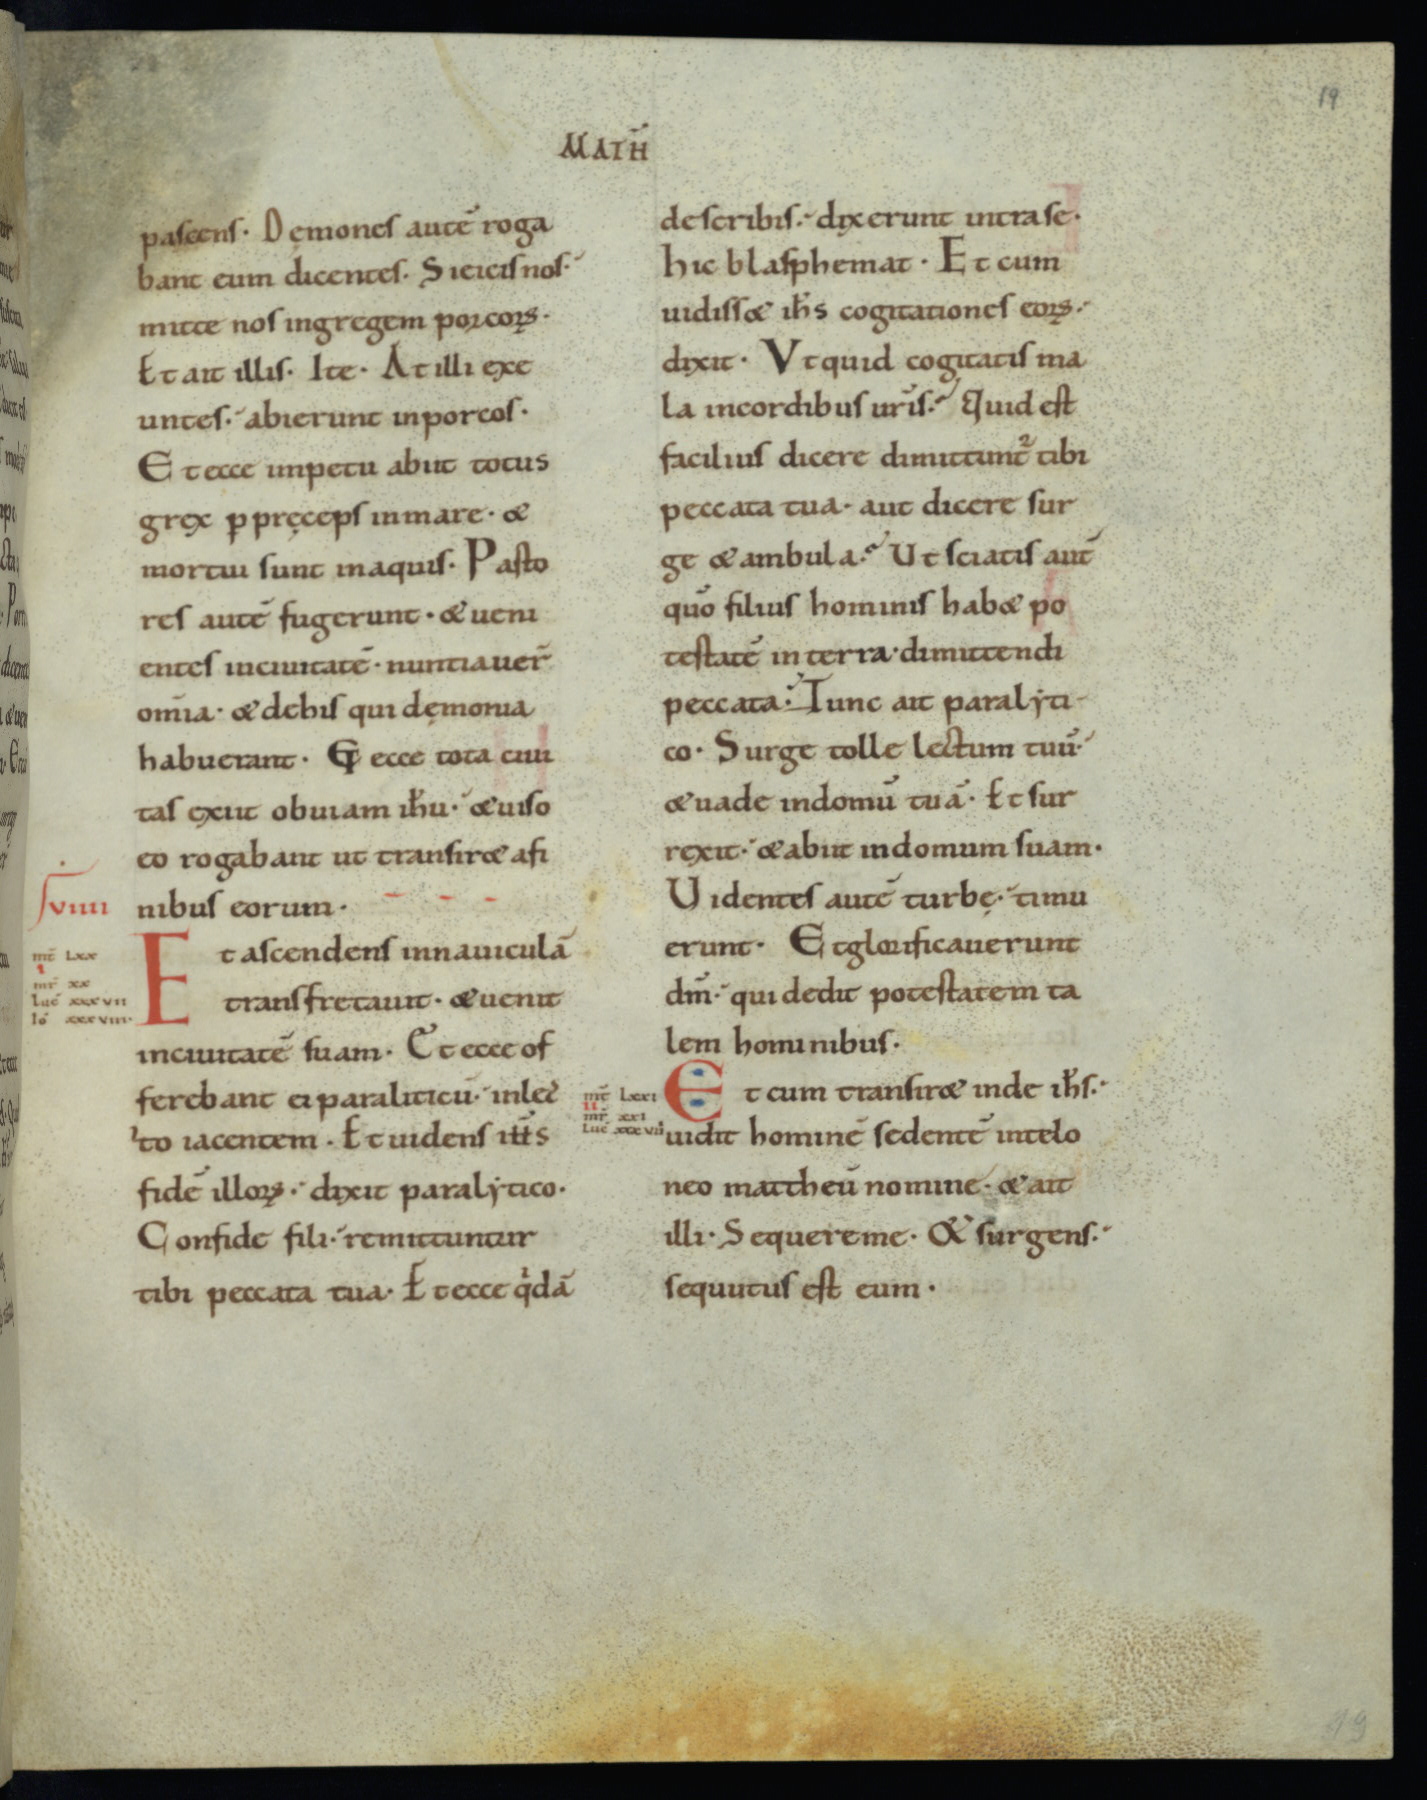 19
MATH̄
pascens· Dęmones autē roga
bant eum dicentes· Si eicis nos·
mitte nos in gregem porcoꝝ·
Et ait illis· Ite· At illi exe
untes· abierunt in porcos·
Et ecce impetu abiit totus
grex ꝑ pręceps in mare· &
mortui sunt in aquis· Pasto
res autē fugerunt· & ueni
entes in ciuitatē· nuntiauer̄
om̄ia· & de his qui dęmonia
habuerant· Et ecce tota ciui
tas exiit obuiam ih̄u· & uiso
eo rogabant ut transir& a fi
nibus eorum·
VIIII
mt̄ Lxx
I
mr̄ xx
Luc̄ xxxvii
Iō xxxviii·
Et ascendens in nauiculā
transfretauit· & uenit
in ciuitatē suam· Et ecce of
ferebant ei paraliticū· in lec
to iacentem· Et uidens ih̄s
fidē illoꝝ· dixit paralẏtico·
Confide fili· remittuntur
tibi peccata tua· Et ecce qͥdā
de scribis· dixerunt intra se·
hic blasphemat· Et cum
uidiss& ih̄s cogitationes eoꝝ·
dixit· Vt quid cogitatis ma
la in cordibus ur̄is· Quid est
facilius dicere dimittunt᷑ tibi
peccata tua· aut dicere sur
ge & ambula· Ut sciatis aut̄
quō filius hominis hab& po
testatē in terra· dimittendi
peccata· Tunc ait paralẏti-
co· Surge tolle lectum tuū·
& uade in domū tuā· Et sur
rexit· & abiit in domum suam·
Uidentes autē turbę· timu
erunt· Et glorificauerunt
dm̄· qui dedit potestatem ta
lem hominibus·
mt̄ Lxxi
II
mr̄ xxi
Luc̄ xxxvii
Et cum transir& inde ih̄s·
uidit hominē sedentē in telo
neo mattheū nomine· & ait
illi· Sequere me· & surgens·
sequutus est eum·
19